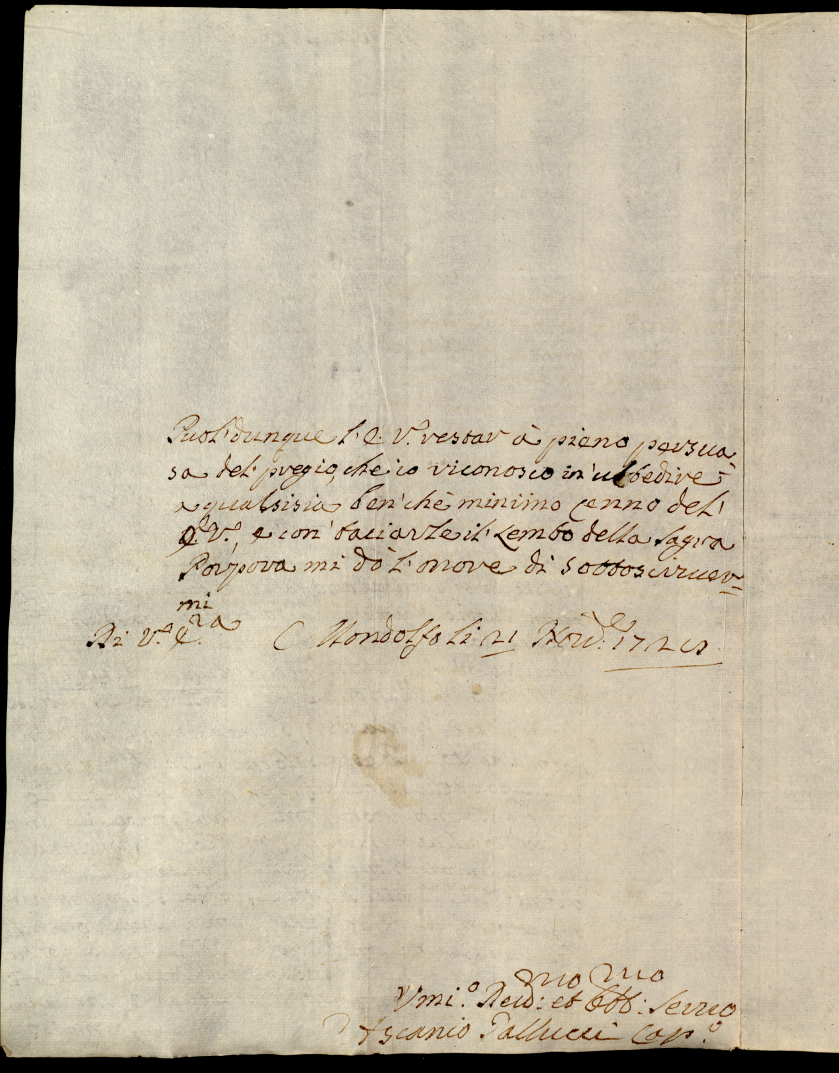 Puol' dunque l'E. V.ª restar à pieno persua
sa del' pregio, che io riconosco in' ubbedire
a qualsisia ben' chè minimo cenno del'
E. V.ª, e con' baciarle il Lembo della Sagra
Porpora mi dò l'onore di sottoscriver=
mi
Di V.ª E.za Mondolfo li 21 Nov.e
Umi.º Dev:mo et Obb:mo Servo
Ascanio Cap.º